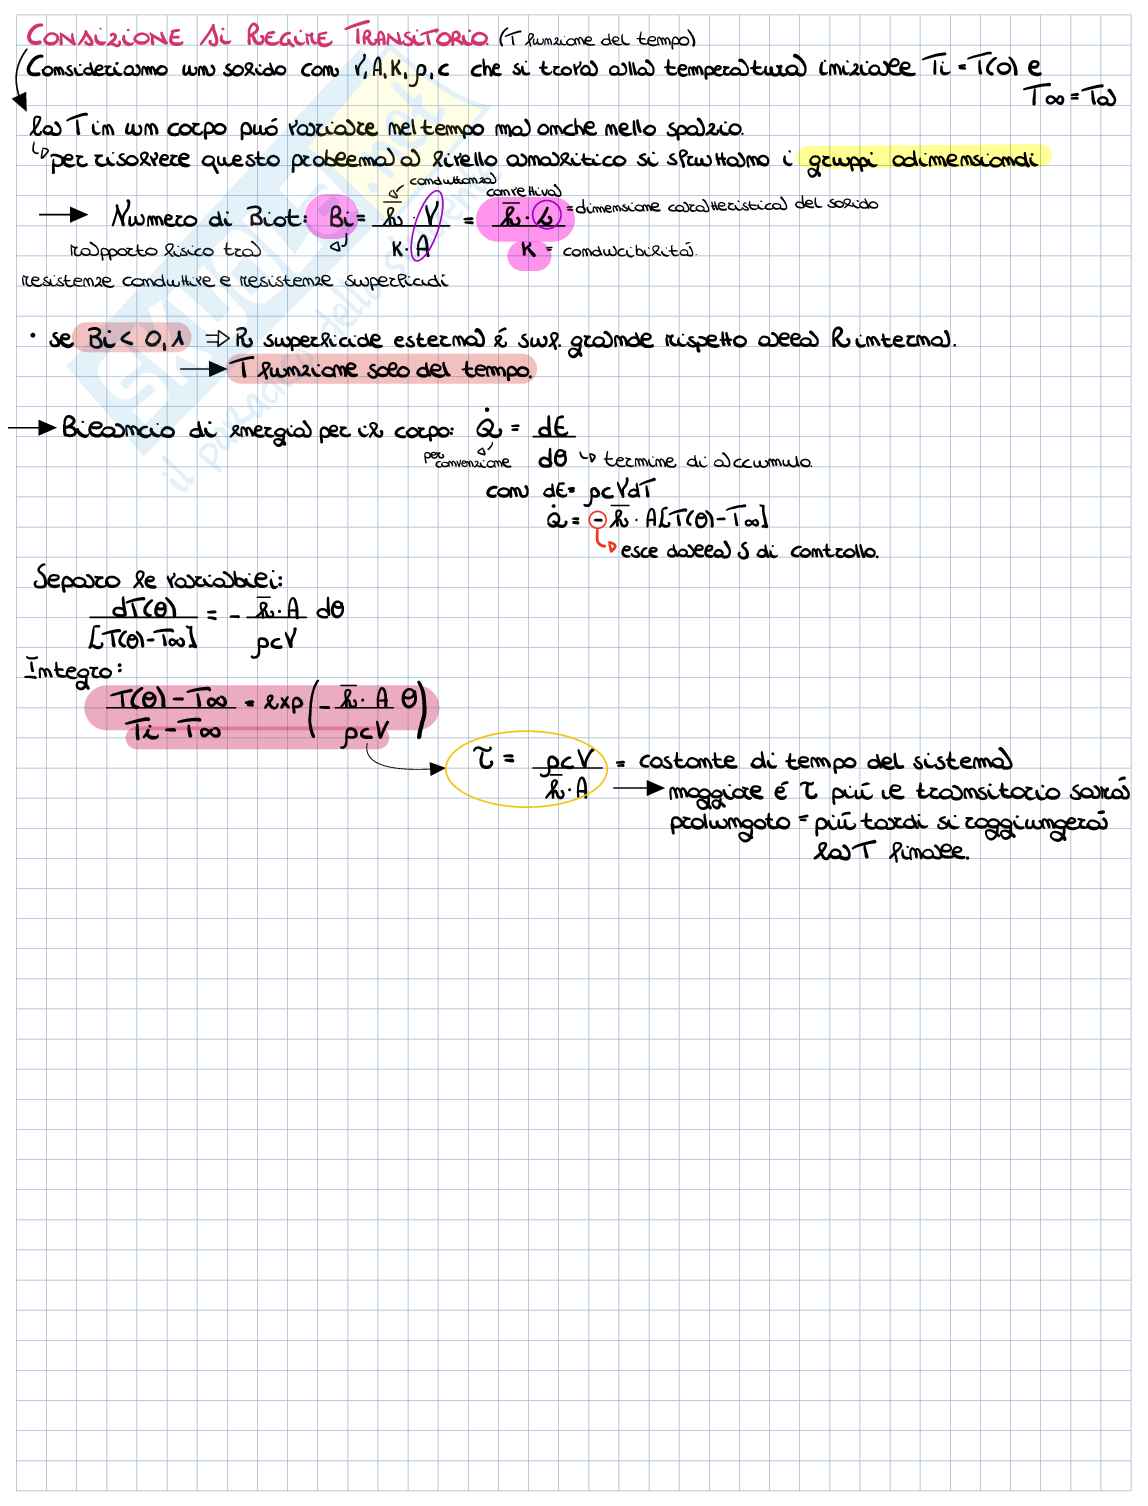 CONDIZIONE DI REGIME TRANSITORIO (T funzione del tempo)
Consideriamo un solido con V, A, K, ρ, c che si trova alla temperatura iniziale Ti = T(0) e
T∞ = Ta
la T in un corpo può variare nel tempo ma anche nello spazio.
↳ per risolvere questo problema a livello analitico si sfruttano i gruppi adimensionali
→ Numero di Biot: Bi = h̅ · V / K · A = h̅ · L / K
conduttanza convettiva
= dimensione caratteristica del solido
= conducibilità
rapporto fisico tra
resistenze conduttive e resistenze superficiali
• se Bi < 0,1 ⇒ R superficiale esterna è suf. grande rispetto alla R interna.
→ T funzione solo del tempo.
→ Bilancio di energia per il corpo: Q̇ = dE / dθ
per convenzione
↳ termine di accumulo
con dE = ρcVdT
Q̇ = - h̅ · A[T(θ) - T∞]
↳ esce dalla S di controllo.
Separo le variabili:
dT(θ) / [T(θ) - T∞] = - h̅ · A / ρcV dθ
Integro:
T(θ) - T∞ / Ti - T∞ = exp(- h̅ · A / ρcV θ)
τ = ρcV / h̅ · A = costante di tempo del sistema
→ maggiore è τ più il transitorio sarà
prolungato = più tardi si raggiungerà
la T finale.
SKUOLA.net